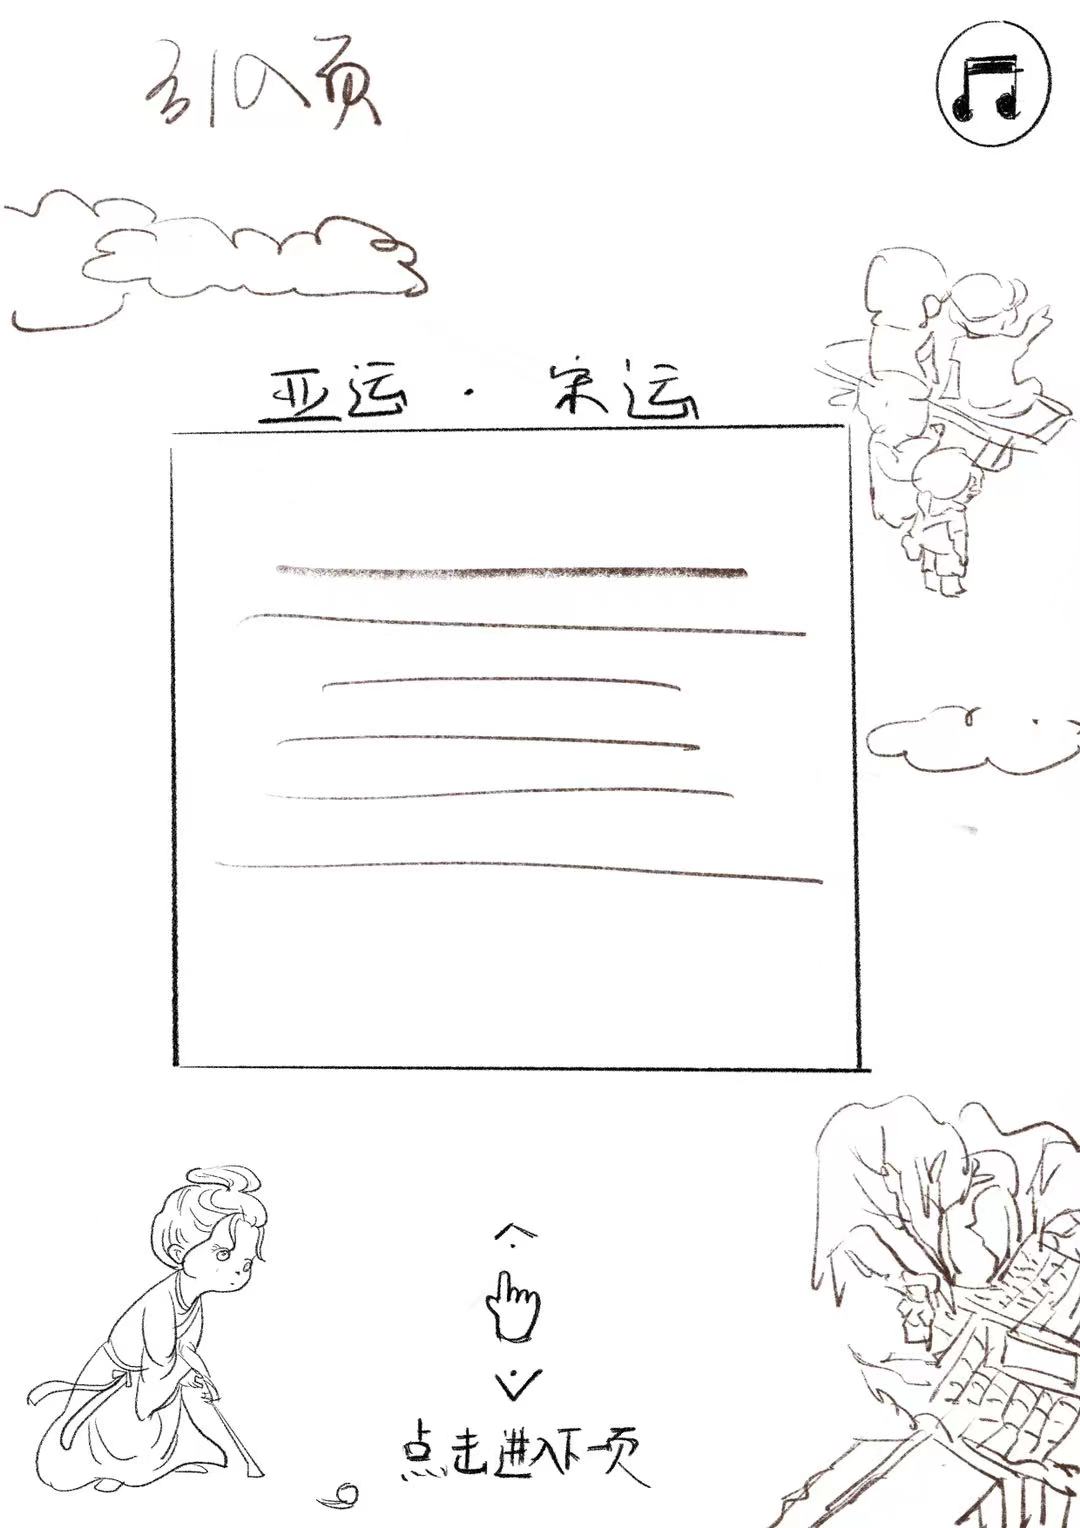 引入页
亚运·宋运
点击进入下一页